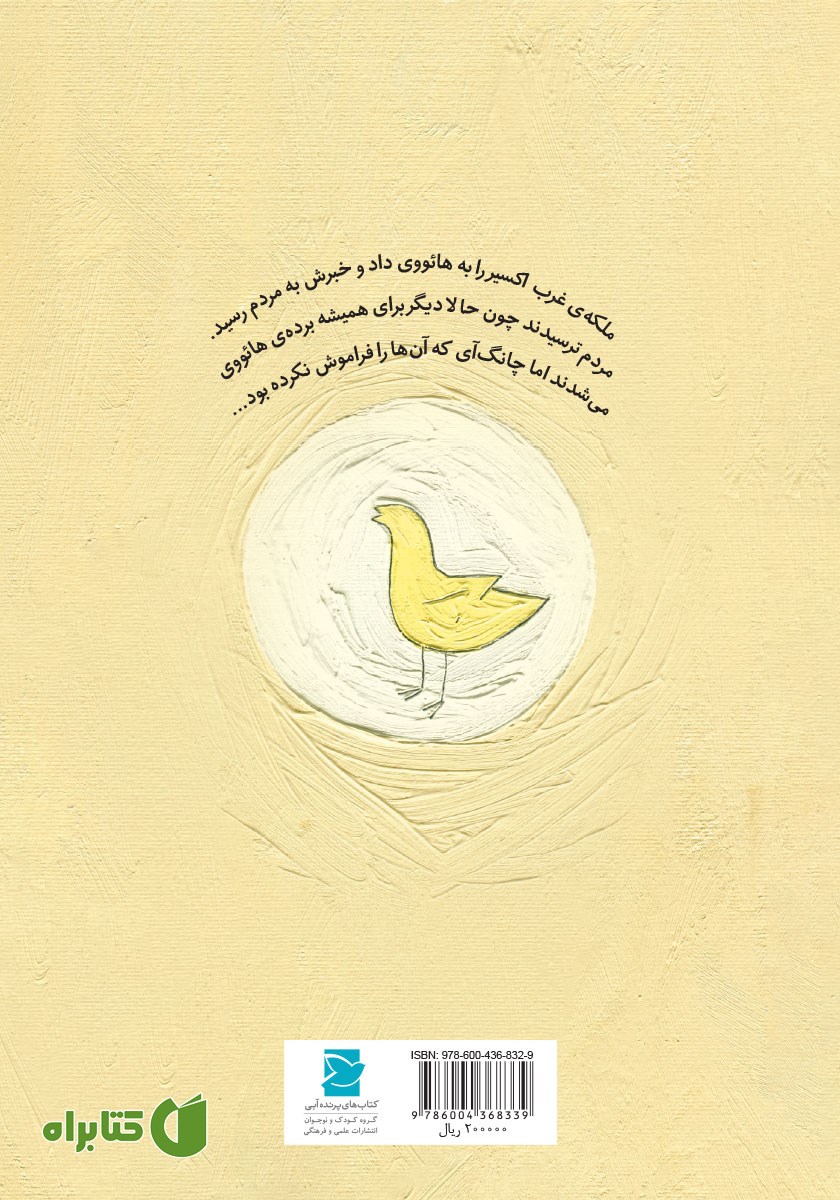 ملکه‌ی غرب اکسیر را به هائووی داد و خبرش به مردم رسید.
مردم ترسیدند چون حالا دیگر برای همیشه برده‌ی هائووی
می‌شدند اما چانگ‌آی که آن‌ها را فراموش نکرده بود...
ISBN: 978-600-436-832-9
9 786004 368339
۲۰۰۰۰۰ ریال
کتاب‌های پرنده آبی
گروه کودک و نوجوان
انتشارات علمی و فرهنگی
کتابراه